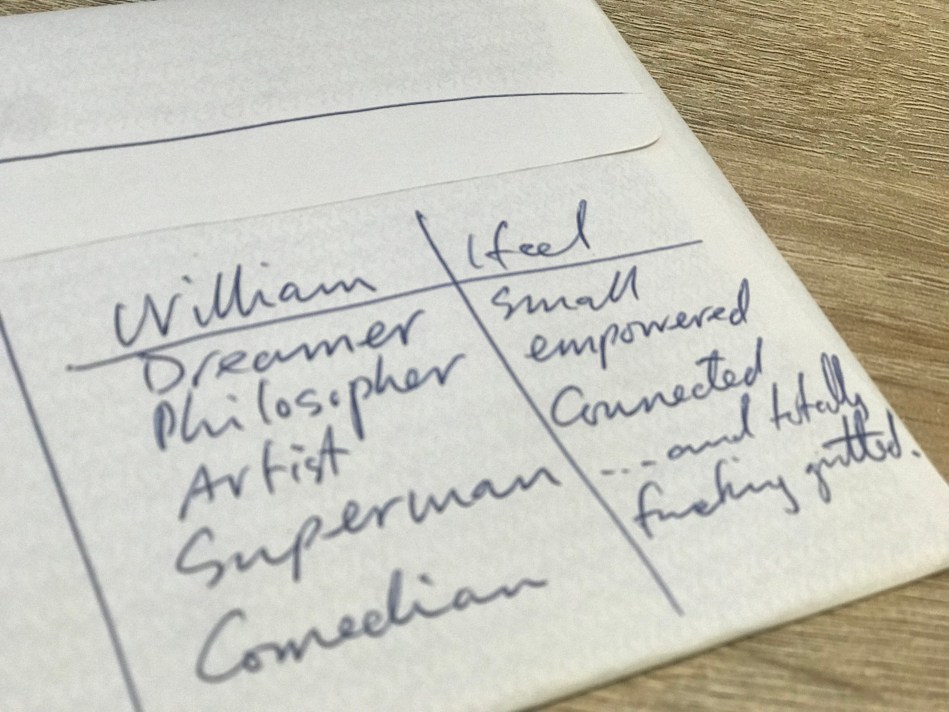 William
Dreamer
Philosopher
Artist
Superman
Comedian
I feel
Small
empowered
Connected
...and totally
fucking gutted.